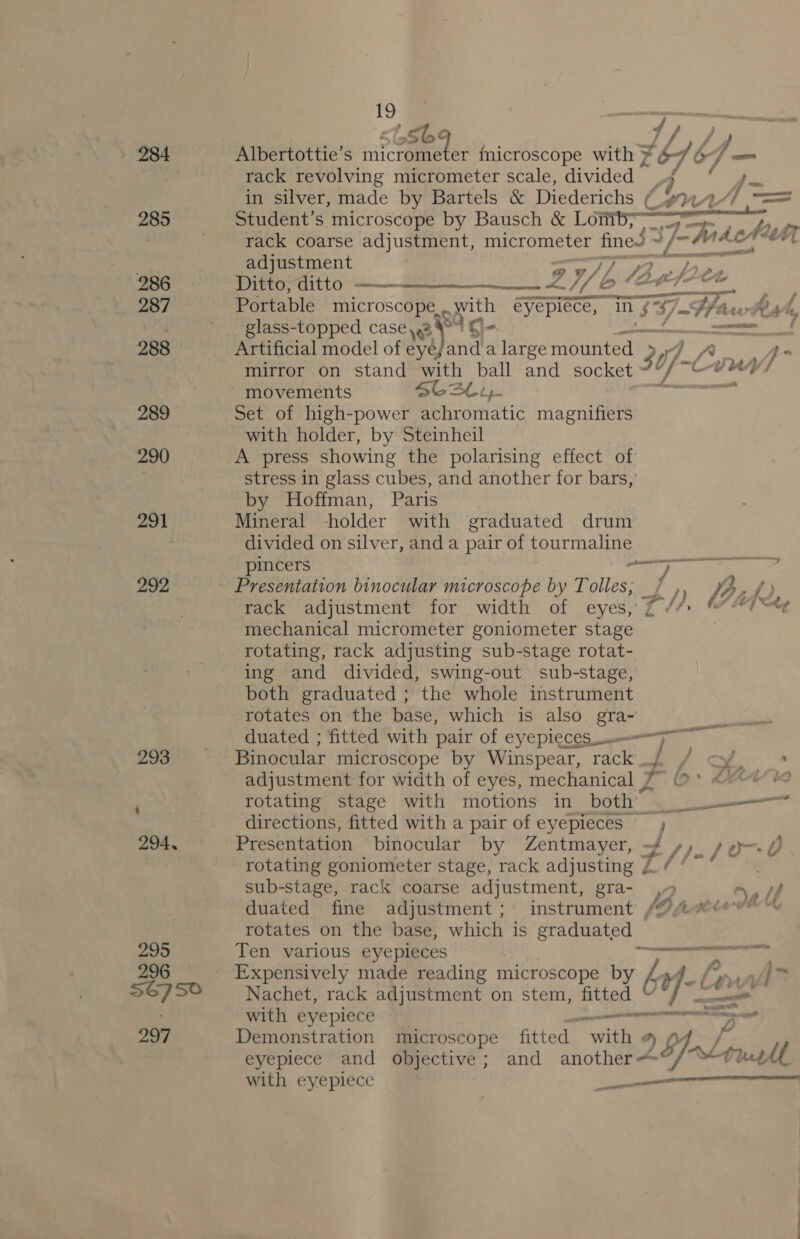 19
284 Albertottie's micrometer microscope with
rack revolving micrometer scale, divided
in silver, made by Bartels & Diederichs
285 Student's microscope by Bausch & Lomb,
rack coarse adjustment, micrometer fine
adjustment
286 Ditto, ditto
287 Portable microscope with eyepiece, in
glass-topped case
288 Artificial model of eye and a large mounted
mirror on stand with ball and socket
movements
289 Set of high-power achromatic magnifiers
with holder, by Steinheil
290 A press showing the polarising effect of
stress in glass cubes, and another for bars,
by Hoffman, Paris
291 Mineral holder with graduated drum
divided on silver, and a pair of tourmaline
pincers
292 Presentation binocular microscope by Tolles;
rack adjustment for width of eyes,
mechanical micrometer goniometer stage
rotating, rack adjusting sub-stage rotat-
ing and divided, swing-out sub-stage,
both graduated ; the whole instrument
rotates on the base, which is also gra-
duated ; fitted with pair of eyepieces
293 Binocular microscope by Winspear, rack
adjustment for width of eyes, mechanical
rotating stage with motions in both
directions, fitted with a pair of eyepieces
294. Presentation binocular by Zentmayer,
rotating goniometer stage, rack adjusting
sub-stage, rack coarse adjustment, gra-
duated fine adjustment ; instrument
rotates on the base, which is graduated
295 Ten various eyepieces
296 Expensively made reading microscope by
56750 Nachet, rack adjustment on stem, fitted
with eyepiece
297 Demonstration microscope fitted with
eyepiece and objective ; and another
with eyepiece